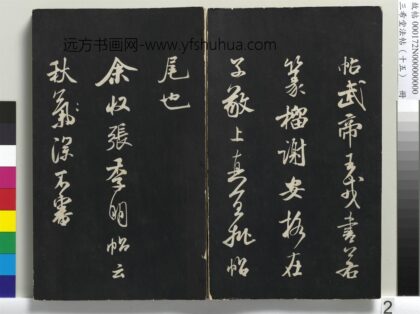 远方书画网-www.yfshuhua.com
故帖 000172N000000000
三希堂法帖（十五） 冊
帖武帝王戎書若
篆籀謝安格在
子敬上真宜批帖
尾也
余收張季明帖云
秋氣深不審
2